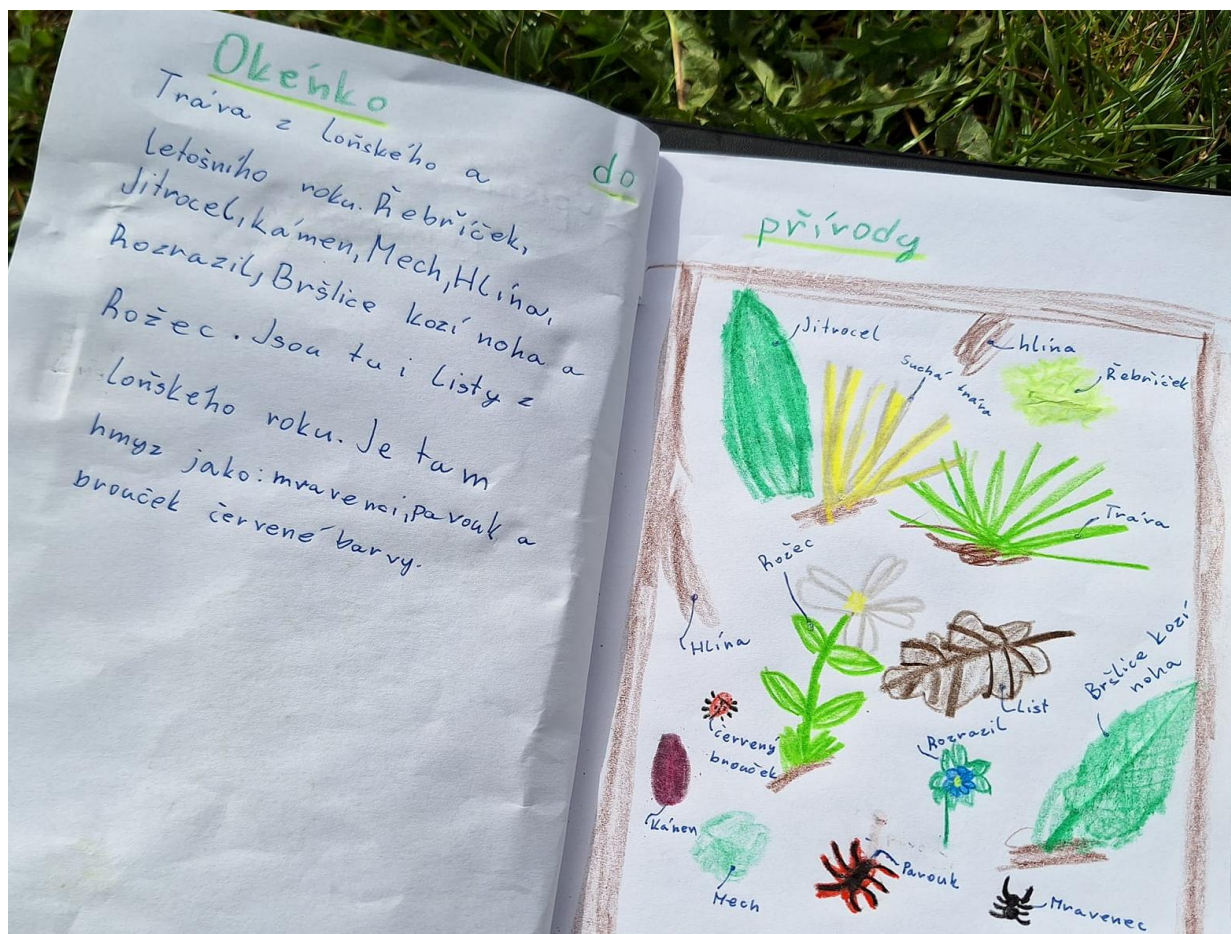 Okeńko
Tráva z loňského a
letošního roku. Řebříček,
Jitrocel, Kámen, Mech, Hlína,
Rozrazil, Bršlice kozí noha a
Rožec. Jsou tu i listy z
loňského roku. Je tam
hmyz jako: mravenci, pavouk a
brouček červené barvy.
do
přírody
Jitrocel
hlína
Suchá tráva
Řebříček
Tráva
Rožec
Hlína
List
Bršlice kozí
noha
červený
brouček
Rozrazil
Kámen
Mech
Pavouk
Mravenec